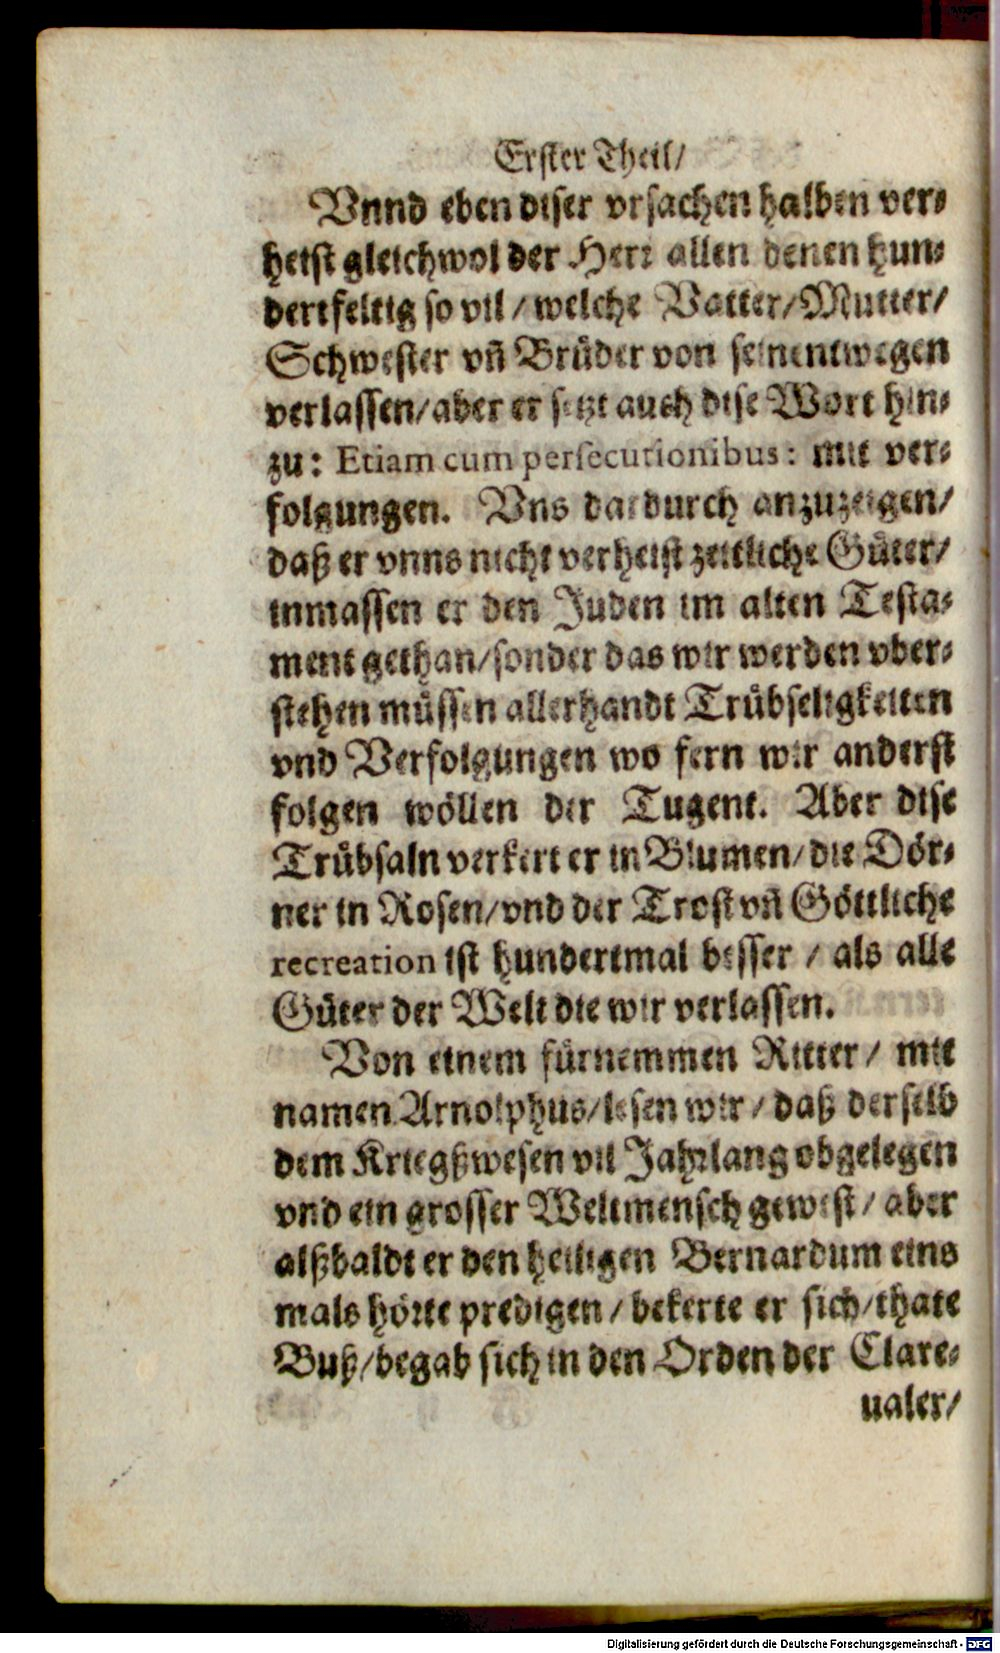 Erster Theil/
Vnnd eben diser vrsachen halben ver⸗
heist gleichwol der Herr allen denen hun⸗
dertfeltig so vil / welche Vatter/Mutter/
Schwester vñ Brüder von seinentwegen
verlassen/aber er setzt auch dise Wort hin⸗
zu: Etiam cum persecutionibus: mit ver⸗
folgungen. Vns dardurch anzuzeigen/
daß er vnns nicht verheist zeitliche Güter/
inmassen er den Juden im alten Testa⸗
ment gethan/sonder das wir werden vber⸗
stehen müssen allerhandt Trübseligkeiten
vnd Verfolgungen wo fern wir anderst
folgen wöllen der Tugent. Aber dise
Trübsaln verkert er in Blumen/die Dör⸗
ner in Rosen/vnd der Trost vñ Göttliche
recreation ist hundertmal besser / als alle
Güter der Welt die wir verlassen.
Von einem fürnemmen Ritter / mit
namen Arnolphus/lesen wir / daß derselb
dem Kriegßwesen vil Jahrlang obgelegen
vnd ein grosser Weltmensch gewest / aber
alßbaldt er den heiligen Bernardum eins
mals hörte predigen / bekerte er sich/thate
Buß/begab sich in den Orden der Clare⸗
ualer/
Digitalisierung gefördert durch die Deutsche Forschungsgemeinschaft - DFG